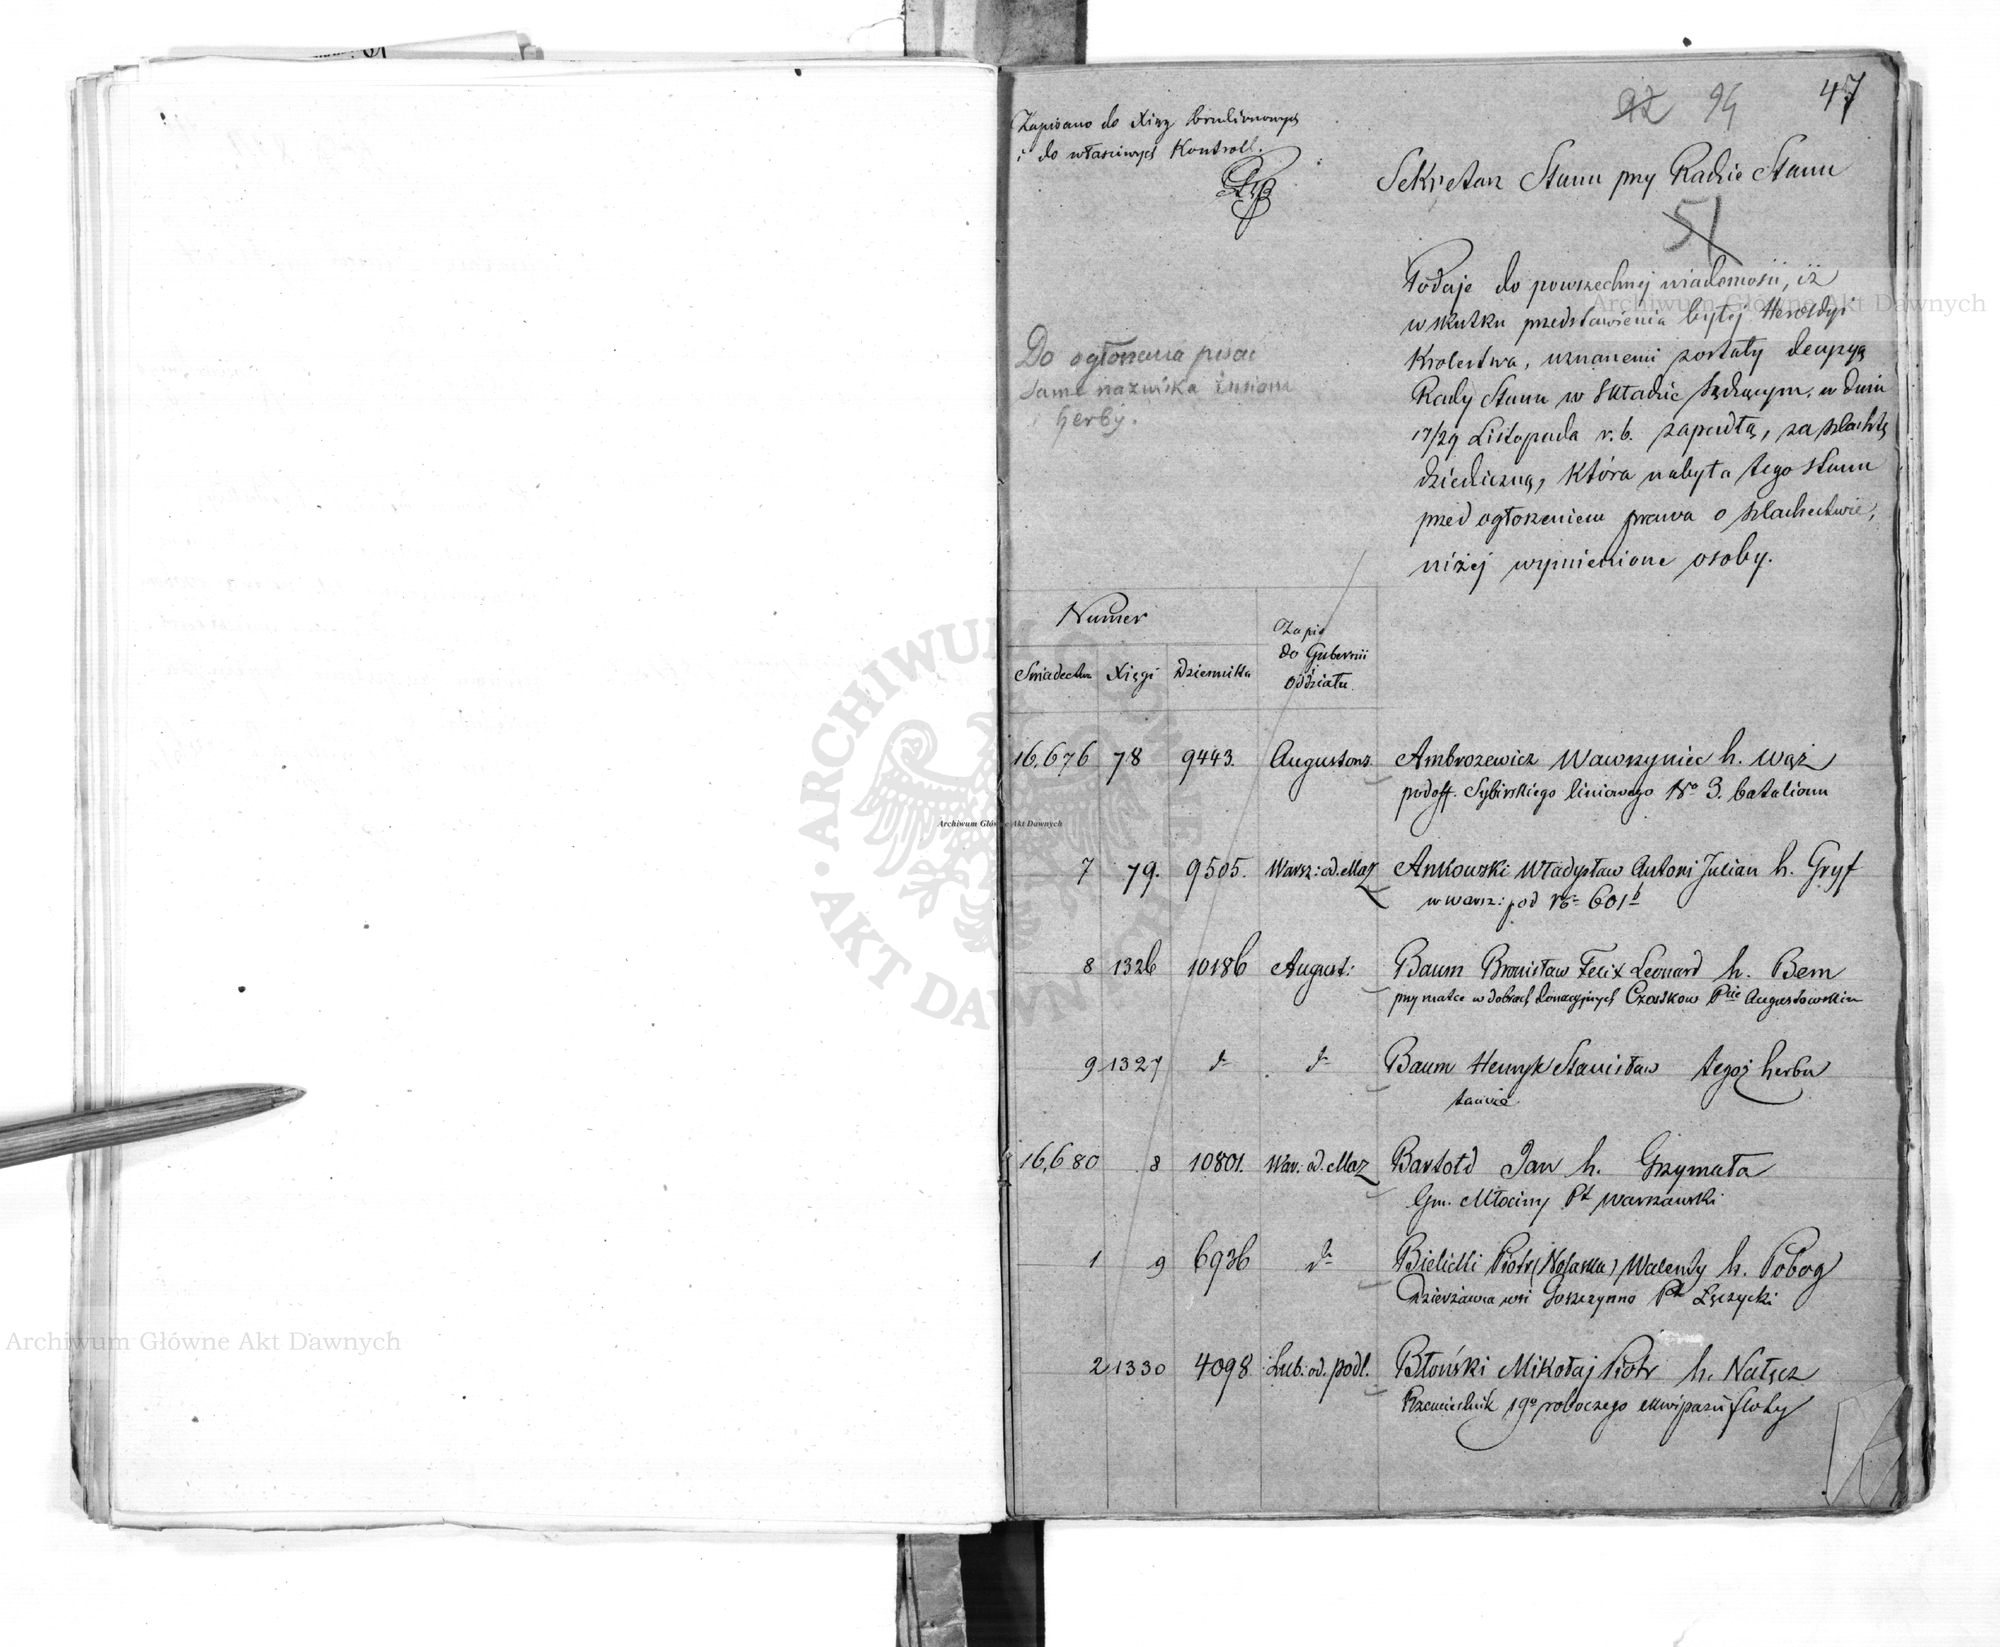 47
94
Zapisano do Xiąg Brulionowych
i do właściwych Kontroll.
Sekretarz Stanu przy Radzie Stanu
51
Podaje do powszechnej wiadomości, iż
w skutku przedstawienia byłej Heroldyi
Królestwa, uznanemi zostały decyzyą
Rady Stanu w Składzie Sądzącym, w dniu
17/29 Listopada r. b. zapadłą, za szlachtę
dziedziczną, która nabyła tego stanu
przed ogłoszeniem prawa o szlachectwie,
niżej wymienione osoby.
Do ogłoszenia pisać
same nazwiska imiona
i herby.
Numer
Świadectwa Xięgi Dziennika Zapis do Gubernii oddziału
16,676 78 9443. Augustows. Ambrozewicz Wawrzyniec h. Wąż
podoff. Sybirskiego liniowego No 3. batalionu
7 79. 9505. Warsz: od. Maz Ankowski Władysław Antoni Julian h. Gryf
w Warsz: pod No 601 b
8 1326 10186 August: Baum Bronisław Felix Leonard h. Bem
przy matce w dobrach donacyjnych Czostkow Pcie Augustowskim
9 1327 d- d- Baum Henryk Stanisław tegoż herbu
tamże
16,680 8 10801. War: od. Maz Bartołd Jan h. Grzymała
Gm. Młociny Pt Warszawski
1 9 6936 d- Bielicki Piotr (Nolaska) Walenty h. Pobog
Dzierżawca wsi Goszczynno Pt Łęczycki
2 1330 4098 Lub: od. podl. Błoński Mikołaj Piotr h. Nałęcz
Rzemieślnik 19o roboczego ekwipażu floty
Archiwum Główne Akt Dawnych
Archiwum Główne Akt Dawnych
Archiwum Główne Akt Dawnych
ARCHIWUM GŁÓWNE AKT DAWNYCH